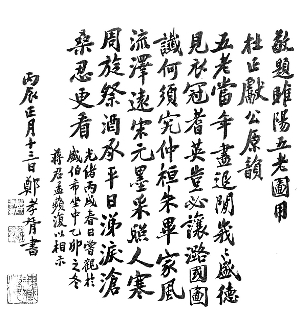 敬題睢陽五老圖用
杜正獻公原韻
五老當年畫退閒幾人盛德
見衣冠耆英豈必讓潞國圖
讖何須究仲桓朱畢家風
流澤遠宋元墨采照人寒
周旋祭酒承平日涕淚滄
桑忍更看
光緒丙戌春日曾觀於
盛伯希坐中乙卯之冬
蔣君孟蘋復以相示
丙辰正月十三日鄭孝胥書